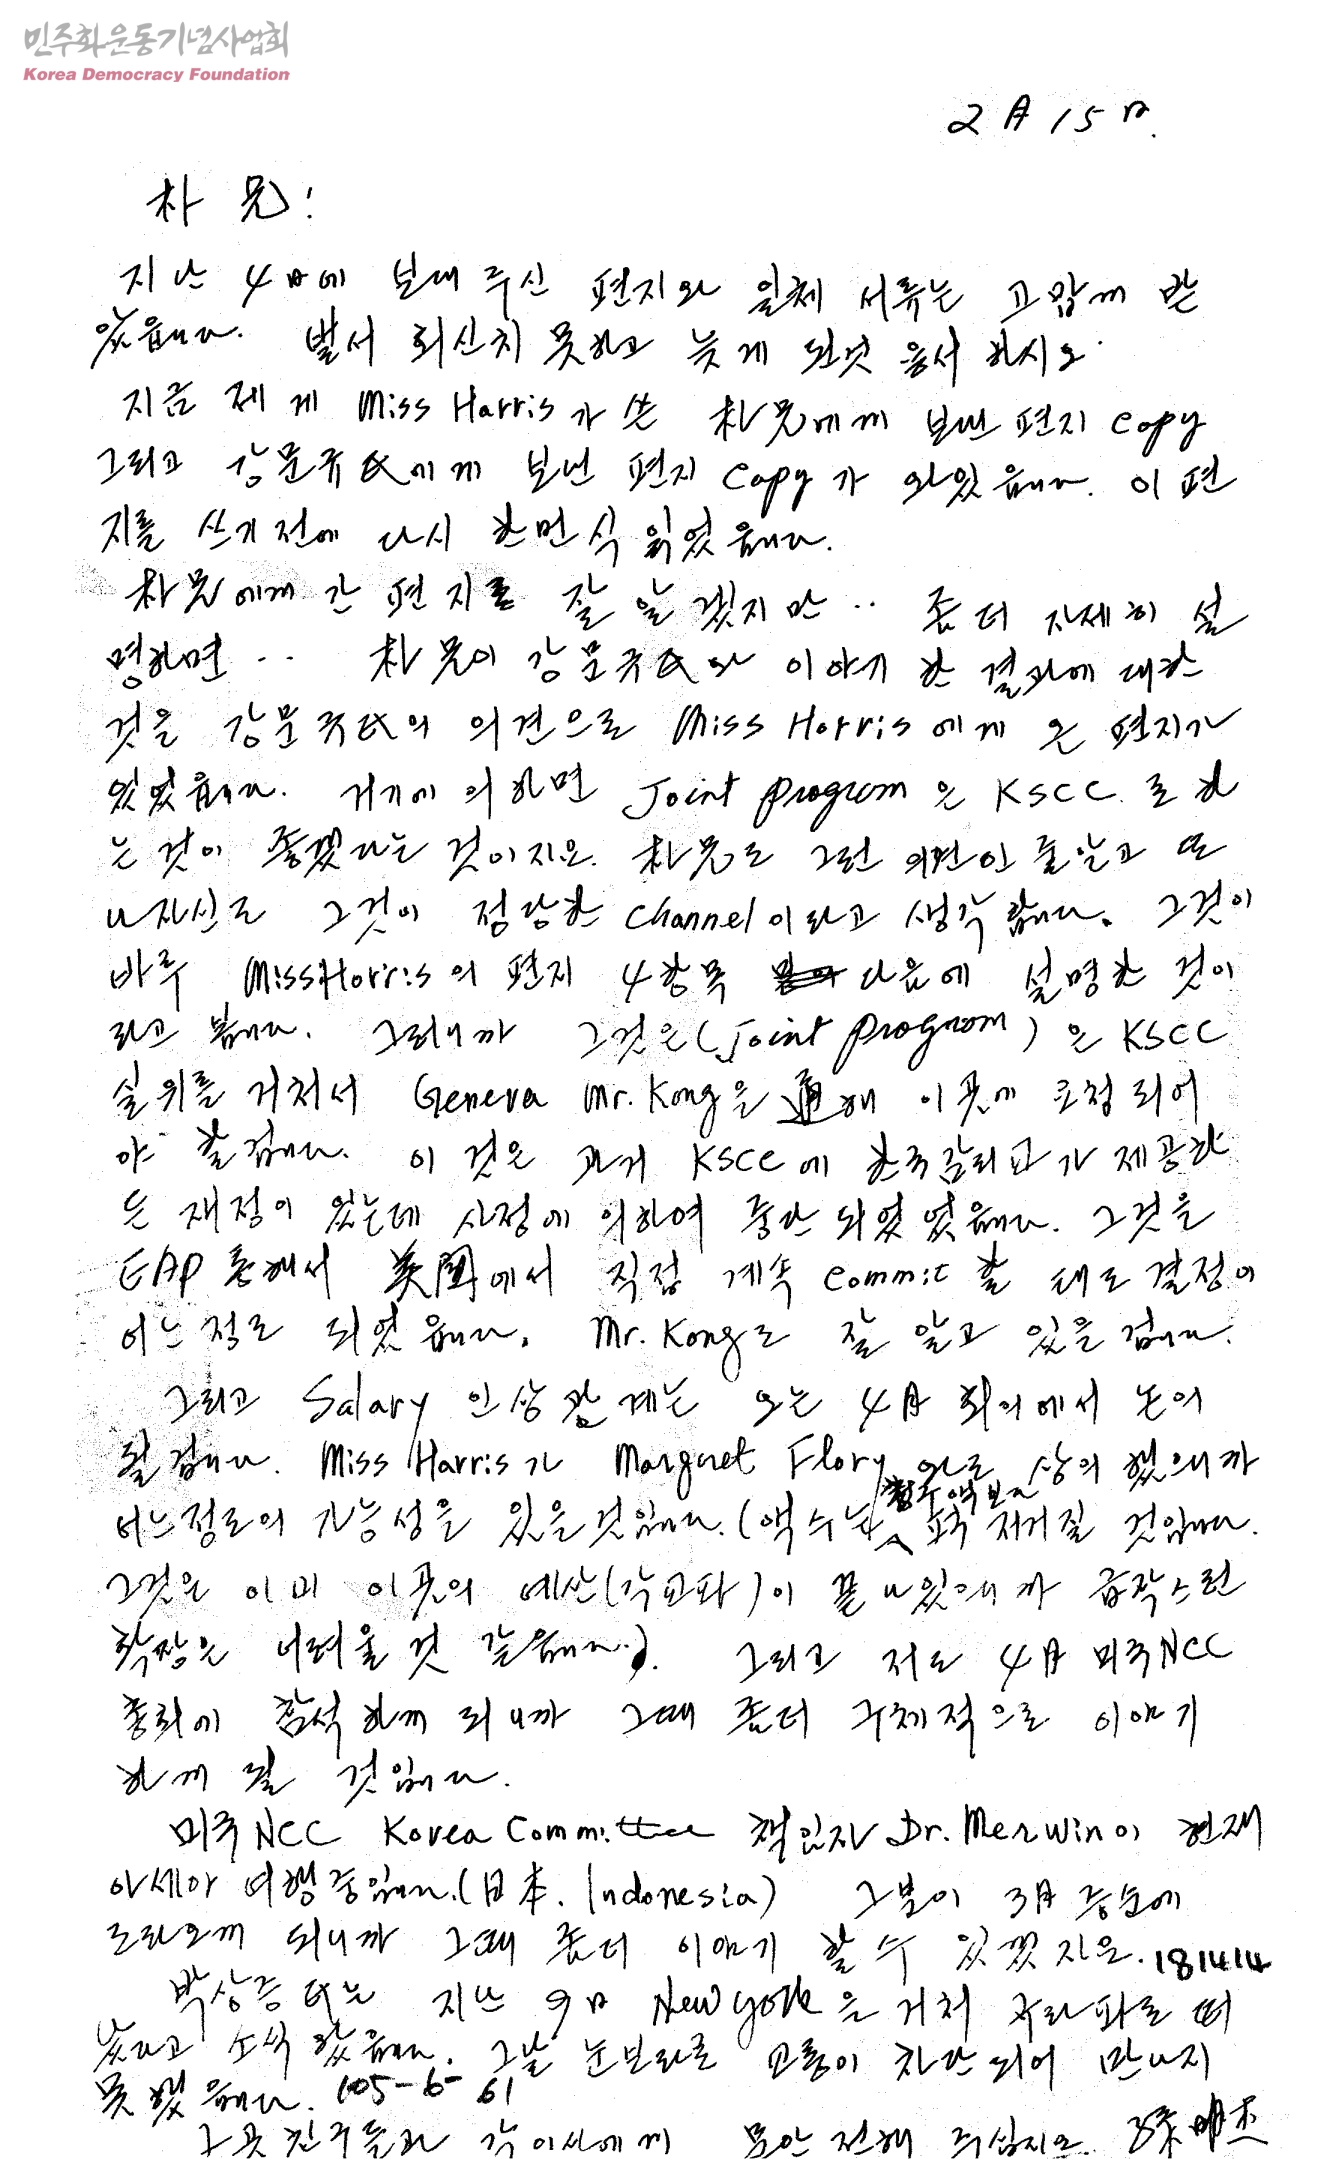 민주화운동기념사업회
Korea Democracy Foundation
2月 15日.
朴兄!
지난 4日에 보내 주신 편지와 일체 서류는 고맙께 받
았읍니다. 벌서 회신치 못하고 늦게 된것 용서 하시오.
지금 제게 Miss Harris가 쓴 朴兄에께 보낸 편지 copy
그리고 강문규氏에게 보낸 편지 copy가 와있읍니다. 이 편
지를 쓰기전에 다시 한번식 읽었읍니다.
朴兄에께 간 편지를 잘 알겠지만.. 좀더 자세히 설
명하면.. 朴兄이 강문규氏와 이야기 한 결과에 대한
것을 강문규氏의 의견으로 Miss Harris에게 온 편지가
있었읍니다. 거기에 의하면 Joint program은 KSCC.로 하
는 것이 좋겠다는 것이지요. 朴兄도 그런 의견인 줄알고 또
나자신도 그것이 정당한 channel이라고 생각 합니다. 그것이
바루 Miss Harris의 편지 4항목 다음에 설명한 것이
라고 봅니다. 그러니까 그것은(Joint program)은 KSCC
실위를 거처서 Geneva Mr. Kong을 通해 이곳에 요청되어
야 할겁니다. 이 것은 과거 KSCC에 한국감리교가 제공하
든 재정이 있는데 사정에 의하여 중단되었었읍니다. 그것을
EAP 통해서 美國에서 직접 계속 commit 할 태도결정이
어느 정도 되었읍니다. Mr. Kong도 잘 알고 있을겁니다.
그리고 Salary 인상관계는 오는 4月 회의에서 논의
될겁니다. Miss Harris가 Margaret Flory 와도 상의 했으니까
어느정도의 가능성은 있을것입니다. (액수는 청구액보다 푹 저거질 것입니다.
그것은 이미 이곳의 예산(각교파)이 끝나있으니까 급작스런
확장은 어려울 것 같읍니다.). 그리고 저도 4月 미국NCC
총회에 참석하께 되니까 그때 좀더 구체적으로 이야기
하께 될 것입니다.
미국NCC Korea Committee 책임자 Dr. Merwin이 현재
아세아 여행중입니다.(日本. Indonesia) 그분이 3月 중순에
도라오께 되니까 그때 좀더 이야기 할수 있겠지요. 181414
박상증氏는 지난 9日 New York을 거처 구라파로 떠
났다고 소식 왔읍니다. 그날 눈보라로 교통이 차단되어 만나지
못했읍니다. 105-6-61
그곳 친구들과 각 이사에께 문안 전해 주십시요. 明杰